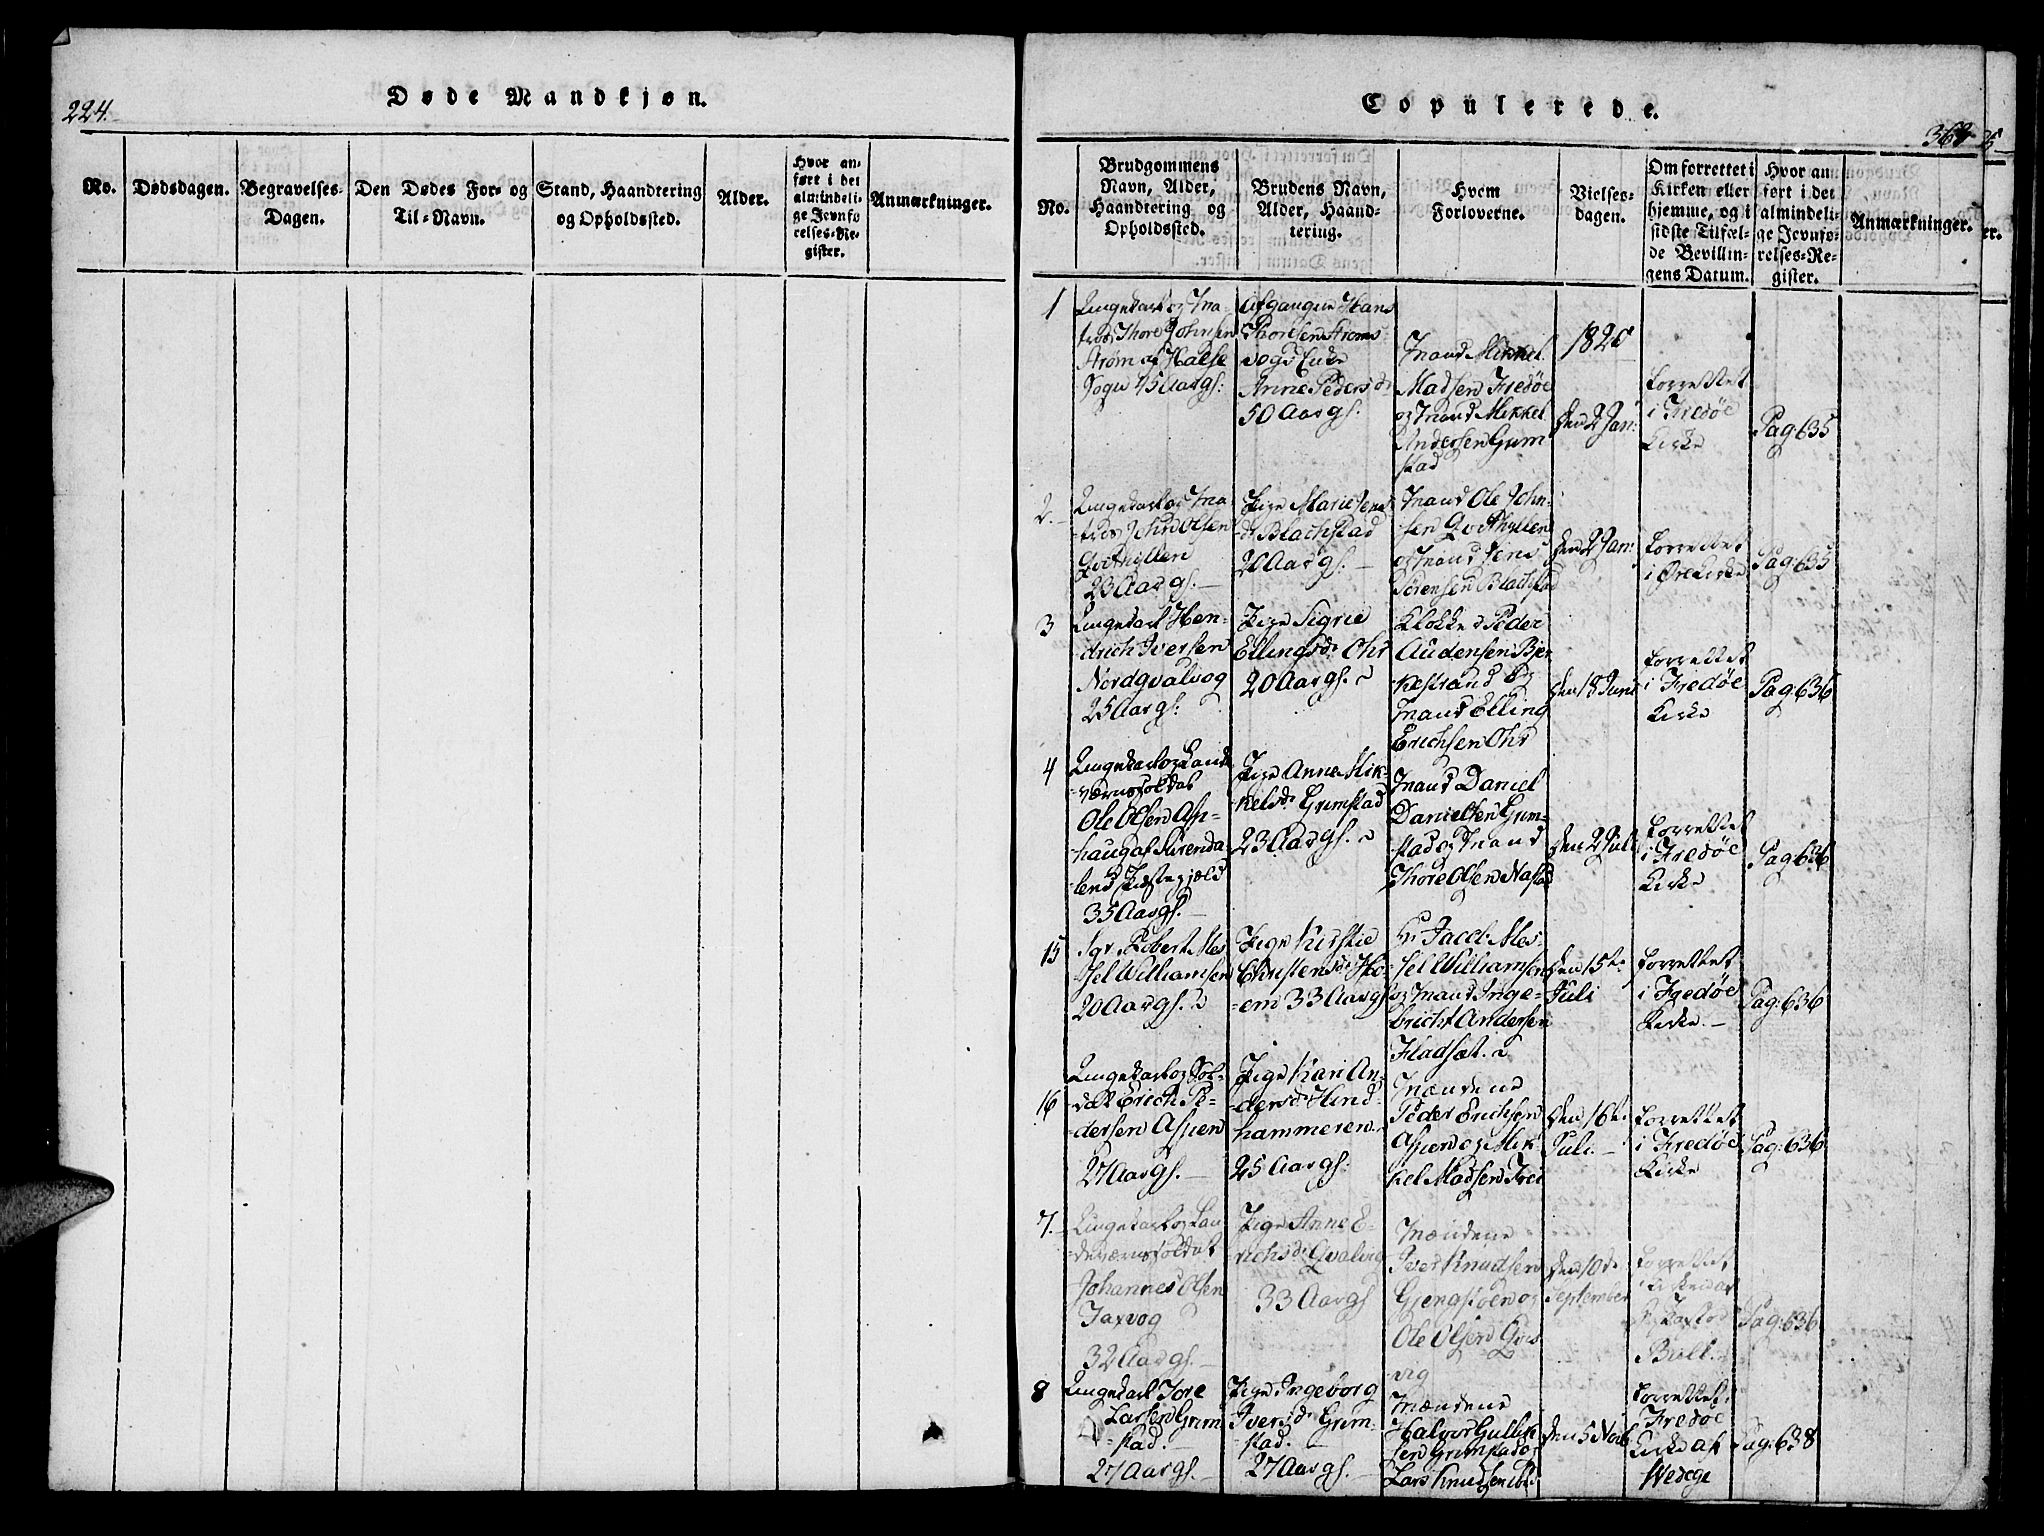 224.
Døde Mandkjøn.
No.
Dødsdagen.
Begravelses-
Dagen.
Den Dødes For- og
Til-Navn.
Stand, Haandtering
og Opholdssted.
Alder.
Hvor an-
ført i det
almindeli-
ge Jevnfø
relses-Re-
gister.
Anmærkninger.
Copulerede.
363
No.
Brudgommens
Navn, Alder,
Haandtering og
Opholdssted.
Brudens Navn,
Alder, Haand-
tering.
Hvem
Forloverne.
Vielses-
dagen.
Om forrettet i
Kirken eller
hjemme, og i
sidste Tilfæl-
de Bevillin-
gens Datum.
Hvor an
ført i det
almindeli-
ge Jevnfø-
relses-Re-
gister.
Anmærkninger.
er.
1
Ungekarl og Ma-
tros Thore Johnsen
Strøm af Halse
Sogn 45 Aar gl:
Afgangne Hans
Thoresen Strøms
Enke
Anne Pedersdr
50 Aar gl:
Mand Mikkel
Madsen Fredøe
og Mand Mikkel
Andersen Grim
stad
1820
den 2 Jan:
Forrettet
i Fredøe
Kirke
Pag: 635
2.
Ungekarl og Ma
tros John Olsen
Qvithyllen
23 Aar gl:
Pige Marie Jens
dr Blachstad
20 Aar gl:
Mand Ole John-
sen Qvithyllen
og Mand Jens
Sørensen Blachstad
den 2 Jan:
Forrettet
i Øre Kirke
Pag: 635
3
Ungekarl Hen-
drich Iversen
Nordqvalvog
25 Aar gl:
Pige Sigrie
Ellingsdr Ohr
20 Aar gl.
Klokker Peder
Audensen Bjer
kestrand og
Mand Elling
Erichsen Ohr
den 18 Juni
Forrettet
i Fredøe
Kirke
Pag: 636
4
Ungekarl og Land
værnsoldat
Ole Olsen Asp-
haug af Surenda
lens Præstegjæld
35 Aar gl.
Pige Anne Mik-
kelsdr Grimstad
23 Aar gl.
Mand Daniel
Danielsen Grim-
stad og Mand
Thore Olsen Nastad
den 2 Juli
Forrettet
i Fredøe
Kirke
Pag: 636
15
Sgr. Robert Mes
sel Williamsen
20 Aar gl.
Pige Kirstie
Christensdr Ho-
em 33 Aar gl
Hr Jacob Mes-
sel Williamsen
og Mand Inge-
bricht Andersen
Fladsæt.
den 15te
Juli
Forrettet
i Fredøe
Kirke.
Pag: 636
16
Ungekarl og Sol-
dat Erich Pe-
dersen Aspen
27 Aar gl.
Pige Kari An-
dersdr Hind-
hammeren
25 Aar gl:
Mændene
Peder Erichsen
Aspen og Mik
kel Madsen Fred
den 16te
Juli.
Forrettet
i Fredøe
Kirke
Pag: 636
7.
Ungekarl og Lan
deværnsoldat
Johannes Olsen
Taxvog
32 Aar gl.
Pige Anne E-
richsdr Qvalvig
33 Aar gl
Mændene
Iver Knudsen
Gjengstøen og
Ole Olsen Qvis
vig
den 10de
September
Forrettet
i Kirken af
Pastor
Bull.
Pag: 636
8
Ungekarl Tore
Larsen Grim
stad.
27 Aar gl.
Pige Ingeborg
Iversdr Grim-
stad.
27 Aar gl.
Mændene
Halvor Gullik
sen Grimstad og
Lars Knudsen
den 5 Novb
Forrettet i
Fredøe
Kirke af
Wedege
Pag: 638